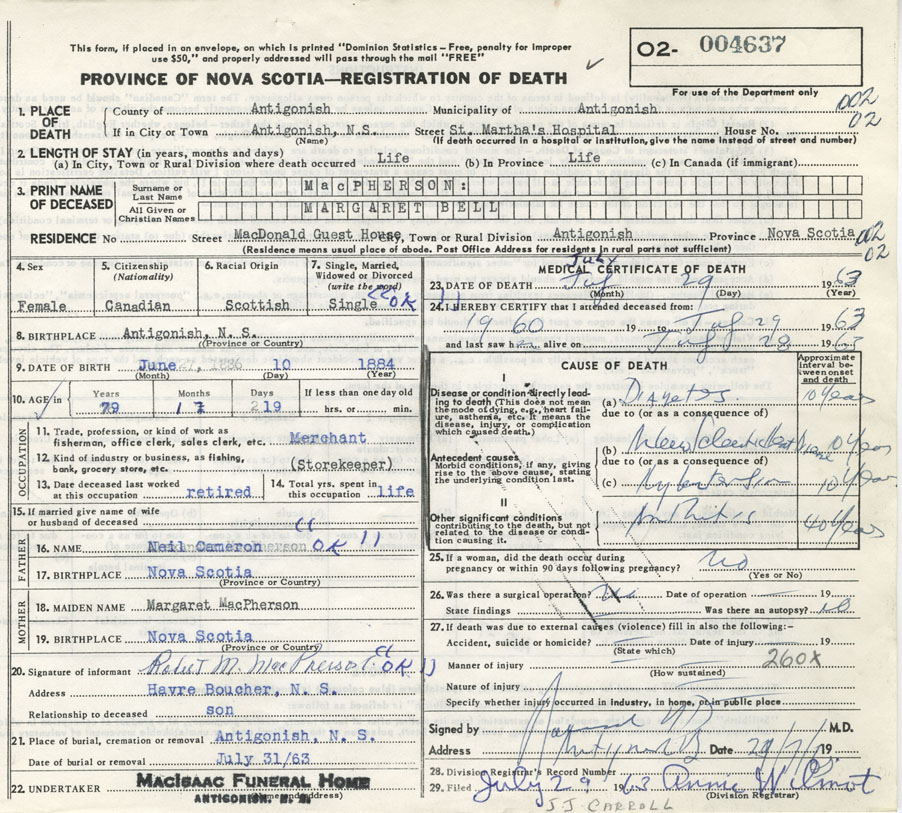 This form, if placed in an envelope, on which is printed "Dominion Statistics – Free, penalty for improper
use $50," and properly addressed will pass through the mail "FREE"
O2- 004637
PROVINCE OF NOVA SCOTIA—REGISTRATION OF DEATH ✓
For use of the Department only
002
02
1. PLACE OF DEATH
County of Antigonish Municipality of Antigonish
If in City or Town Antigonish, N.S. Street St. Martha's Hospital House No.
(Name) (If death occurred in a hospital or institution, give the name instead of street and number)
2. LENGTH OF STAY (in years, months and days)
(a) In City, Town or Rural Division where death occurred Life (b) In Province Life (c) In Canada (if immigrant)
3. PRINT NAME OF DECEASED
Surname or Last Name MacPHERSON:
All Given or Christian Names MARGARET BELL
RESIDENCE No Street MacDonald Guest House City, Town or Rural Division Antigonish Province Nova Scotia
002
02
(Residence means usual place of abode. Post Office Address for residents in rural parts not sufficient)
4. Sex
Female
5. Citizenship
(Nationality)
Canadian
6. Racial Origin
Scottish
7. Single, Married, Widowed or Divorced
(write the word)
Single OK
8. BIRTHPLACE Antigonish, N. S.
(Province or Country)
9. DATE OF BIRTH June 10 1884
(Month) (Day) (Year)
10. AGE in
Years Months Days If less than one day old
79 1 19 hrs. or min.
OCCUPATION
11. Trade, profession, or kind of work as
fisherman, office clerk, sales clerk, etc. Merchant
12. Kind of industry or business, as fishing,
bank, grocery store, etc. (Storekeeper)
13. Date deceased last worked
at this occupation retired
14. Total yrs. spent in
this occupation life
15. If married give name of wife
or husband of deceased
FATHER
16. NAME Neil Cameron OK
17. BIRTHPLACE Nova Scotia
(Province or Country)
MOTHER
18. MAIDEN NAME Margaret MacPherson
19. BIRTHPLACE Nova Scotia
(Province or Country)
20. Signature of informant Robert M. MacPherson OK
Address Havre Boucher, N. S.
Relationship to deceased son
21. Place of burial, cremation or removal Antigonish, N. S.
Date of burial or removal July 31/63
22. UNDERTAKER MacIsaac Funeral Home
Antigonish, N. S.
MEDICAL CERTIFICATE OF DEATH
July
23. DATE OF DEATH 29 1963
(Month) (Day) (Year)
24. I HEREBY CERTIFY that I attended deceased from:
1960 19 to July 29 1963
and last saw h alive on July 28 1963
CAUSE OF DEATH
Approximate interval between onset and death
I
Disease or condition directly leading to death (This does not mean the mode of dying, e.g., heart failure, asthenia, etc. It means the disease, injury, or complication which caused death.)
(a) 10 Years
due to (or as a consequence of)
Antecedent causes
Morbid conditions, if any, giving rise to the above cause, stating the underlying condition last.
(b) 10 Years
due to (or as a consequence of)
(c) Hypertension 10 Years
II
Other significant conditions
contributing to the death, but not related to the disease or condition causing it.
Arthritis 40 Years
25. If a woman, did the death occur during
pregnancy or within 90 days following pregnancy? No
(Yes or No)
26. Was there a surgical operation? Date of operation 19
State findings Was there an autopsy? No
27. If death was due to external causes (violence) fill in also the following:–
Accident, suicide or homicide? Date of injury 19
(State which)
Manner of injury 260X
(How sustained)
Nature of injury
Specify whether injury occurred in industry, in home, or in public place
Signed by M.D.
Address Antigonish Date 29/7/19
28. Division Registrar's Record Number
29. Filed July 29 1963 Annie Wilmot
(Division Registrar)
J J CARROLL